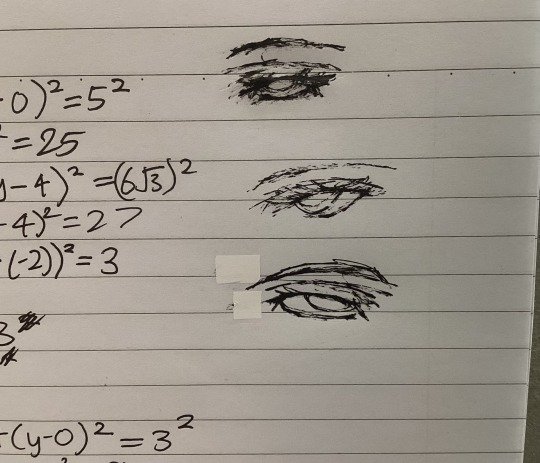 0)²=5²
²=25
y-4)²=(6√3)²
-4)²=27
(-2))²=3
3
(y-0)²=3²